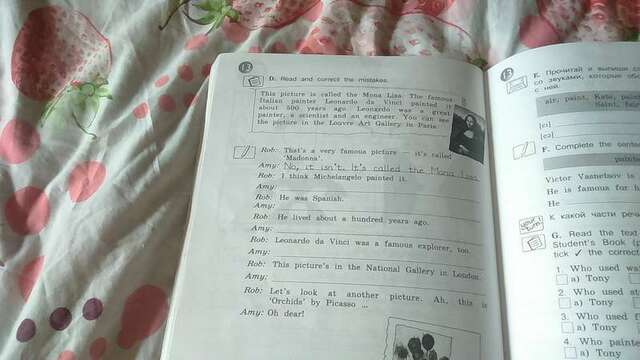 13
D. Read and correct the mistakes.
This picture is called the Mona Lisa. The famous
Italian painter Leonardo da Vinci painted it
about 500 years ago. Leonardo was a great
painter, a scientist and an engineer. You can see
the picture in the Louvre Art Gallery in Paris.
Rob: That's a very famous picture — it's called
'Madonna'.
Amy: No, it isn't. It's called the Mona Lisa.
Rob: I think Michelangelo painted it.
Amy:
Rob: He was Spanish.
Amy:
Rob: He lived about a hundred years ago.
Amy:
Rob: Leonardo da Vinci was a famous explorer, too.
Amy:
Rob: This picture's in the National Gallery in London.
Amy:
Rob: Let's look at another picture. Ah, this is
'Orchids' by Picasso ...
Amy: Oh dear!
13
E. Прочитай и выпиши
со звуками, которые
с ней.
air, paint, Kate,
Saint,
[eɪ]
[eə]
F. Complete the
Victor Vasnetsov is
He is famous for
He
К какой части
G. Read the text
Student's Book
tick ✓ the correct
1. Who used
a) Tony
2. Who used
a) Tony
3. Who used
a) Tony
4. Who